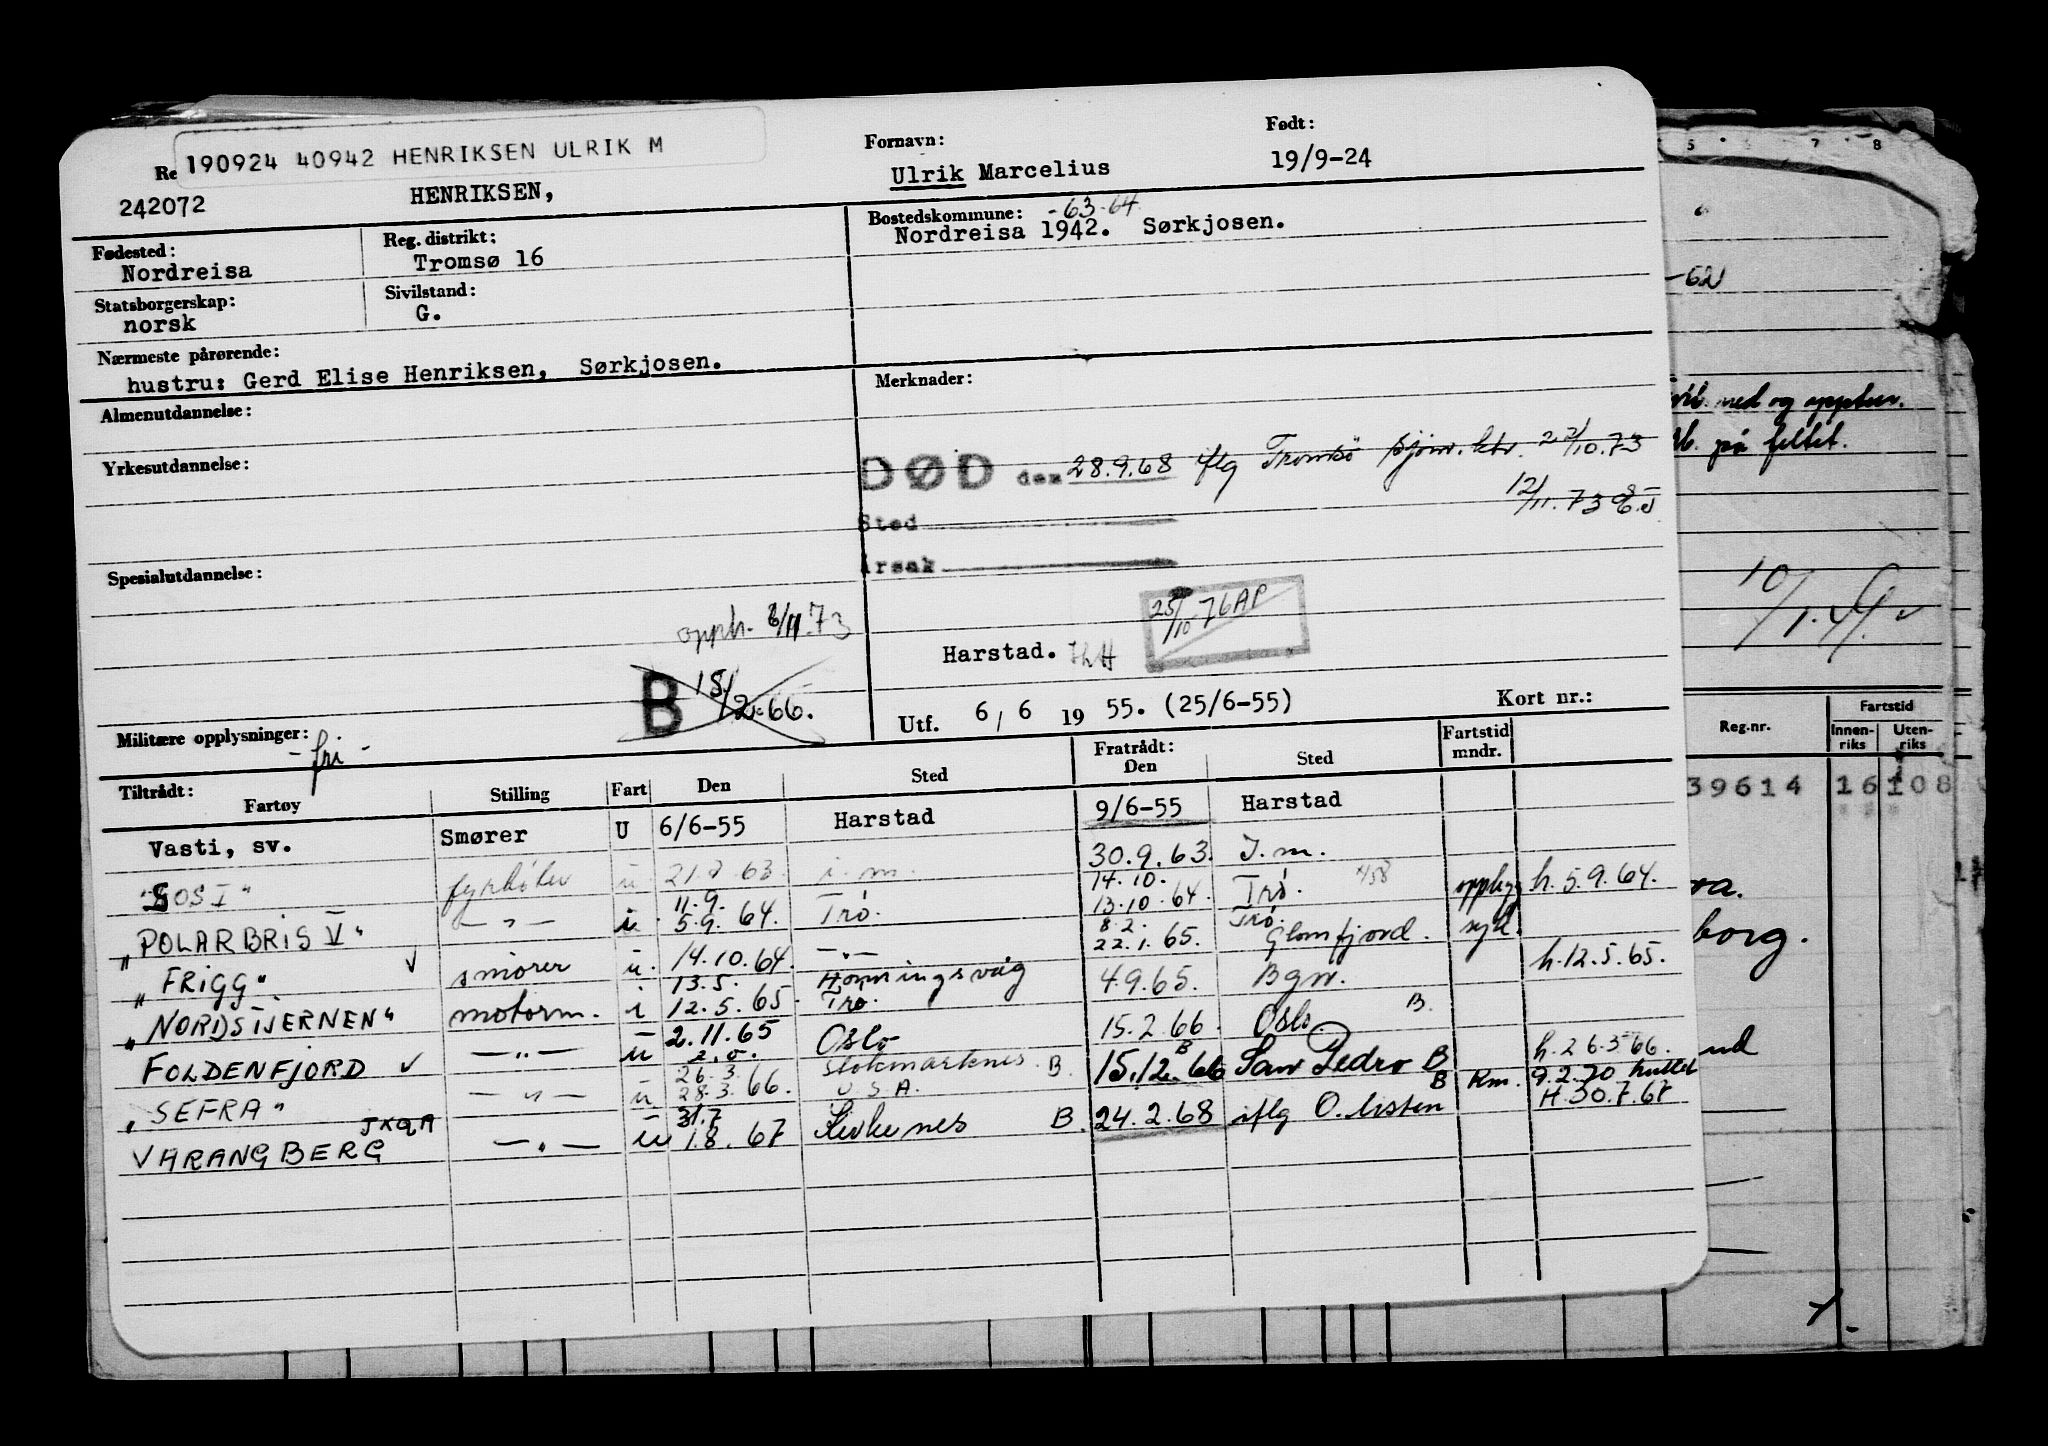 190924 40942 HENRIKSEN ULRIK M
Re
242072
HENRIKSEN,
Fornavn:
Ulrik Marcelius
Født:
19/9-24
Fødested:
Nordreisa
Reg. distrikt:
Tromsø 16
Bostedskommune: -63-64.
Nordreisa 1942. Sørkjosen.
Statsborgerskap:
norsk
Sivilstand:
G.
Nærmeste pårørende:
hustru: Gerd Elise Henriksen, Sørkjosen.
Almenutdannelse:
Merknader:
Yrkesutdannelse:
DØD den 28.9.68 iflg Tromsø sjøm. ktr. 22/10.73
12/11.73
Sted
Årsak
Spesialutdannelse:
opph. 6/11.73
25/10 76 AP
Harstad.
B 15/2.66.
Utf. 6/6 1955. (25/6-55)
Kort nr.:
Militære opplysninger:
- fri -
Tiltrådt:
Fartøy Stilling Fart Den Sted
Fratrådt:
Den Sted
Fartstid
mndr.
Vasti, sv. Smører U 6/6-55 Harstad 9/6-55 Harstad
"SOS I" u 63. i.m. 30.9.63. I.m.
"POLARBRIS V" -"- i 11.9. 5.9.64. Trø. 14.10. 13.10.64. Trø. h.5.9.64.
"FRIGG" smører u. 14.10.64. -"- 8.2. 22.1.65. Trø. Glomfjord. syk.
"NORDSTJERNEN" motorm. i 13.5. 12.5.65. Honningsvåg Trø. 4.9.65. Bgn. h.12.5.65.
FOLDENFJORD -"- u 2.11.65 Oslo 15.2.66. Oslo. B.
"SEFRA" -"- u 26.3. 28.3.66. Stokmarknes. U.S.A. B. 15.12.66 San Pedro B h.26.3.66.
9.2.70
VARANGBERG JXQA -"- u 31.7 1.8.67 Kirkenes B. 24.2.68 iflg O. listen B Rm. H.30.7.67
5 7 8
-62
ned og opptur.
på feltet.
10/1.
Reg.nr.
Fartstid
Innen-
riks
Uten-
riks
39614 16 108
borg.